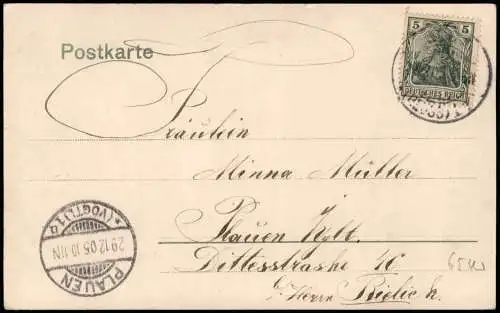 Postkarte
5
DEUTSCHES REICH
Fräulein
Minna Müller
Plauen
Dittesstrasse
Herrn
PLAUEN
*(VOGTL.)1
29.12.05.10-11N